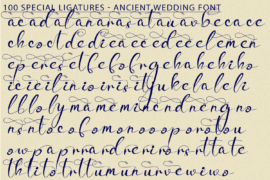 100 SPECIAL LIGATURES - ANCIENT WEDDING FONT
acadalanarasatauavbecace
chcoctdedicaecedeeelemen
eperesetfefofrgehahehiho
icieilinioirisit
lllololymamemimendnengno
nsntocofomonooopoorotou
owpaprrardrerirorosrsttate
thtitotrttumunurvewiwo